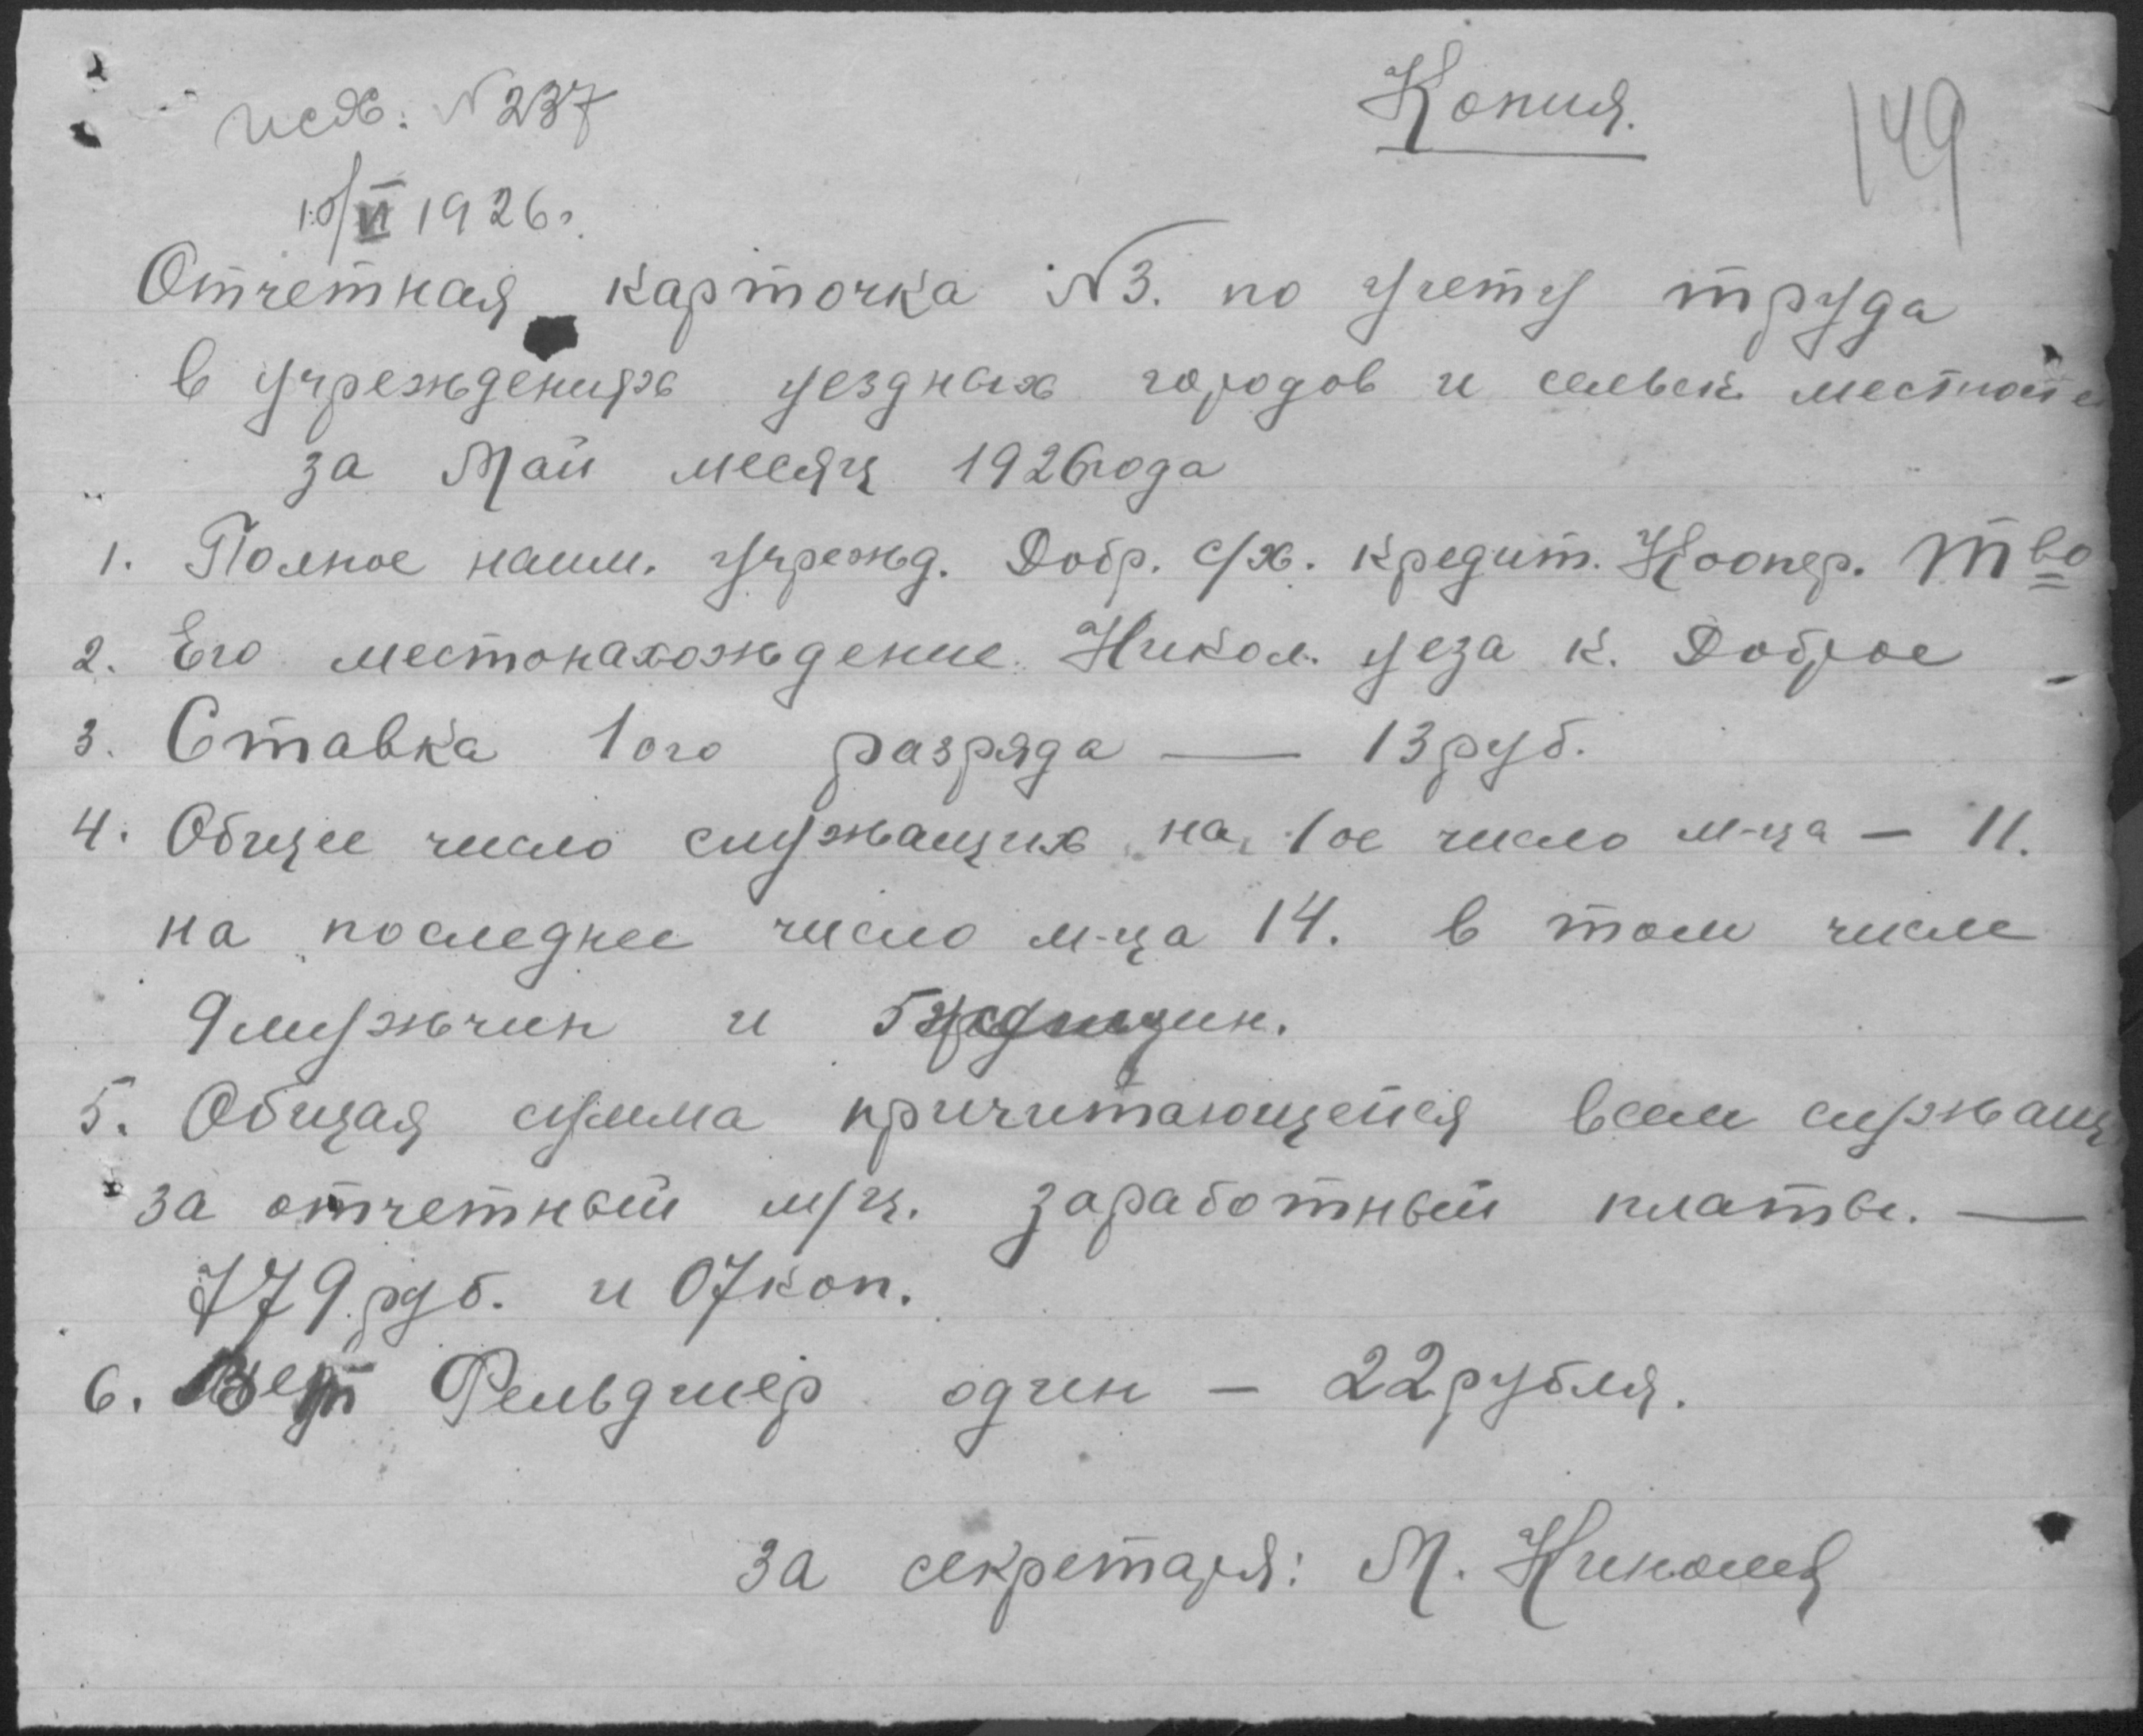 исх. N 237
Копия.
149
10/VI 1926г.
Отчетная карточка N3. по учету труда
в учреждениях уездных городов и сельск. местност
за Май месяц 1926 года
1. Полное наим. учрежд. Добр. с/х. кредит. Коопер. Т-во
2. Его местонахождение. Никол. уеза к. Доброе
3. Ставка 1ого разряда — 13 руб.
4. Общее число служащих на 1ое число м-ца — 11.
на последнее число м-ца 14. в том числе
9 мужчин и 5
5. Общая сумма причитающейся всем служащ.
за отчетный м/ц. заработный платы. —
779 руб. и 07 коп.
6. Вет Фельдшер один — 22 рубля.
За секретаря: М.